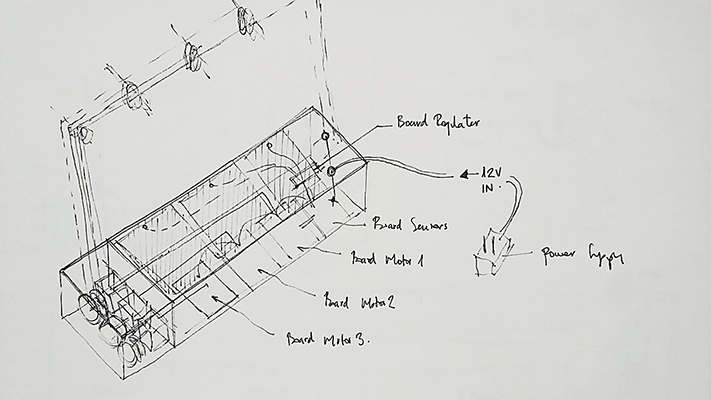 Board Regulater
12V
IN.
Board Sensors
Board Motor 1
Power Supply
Board Motor 2
Board Motor 3.